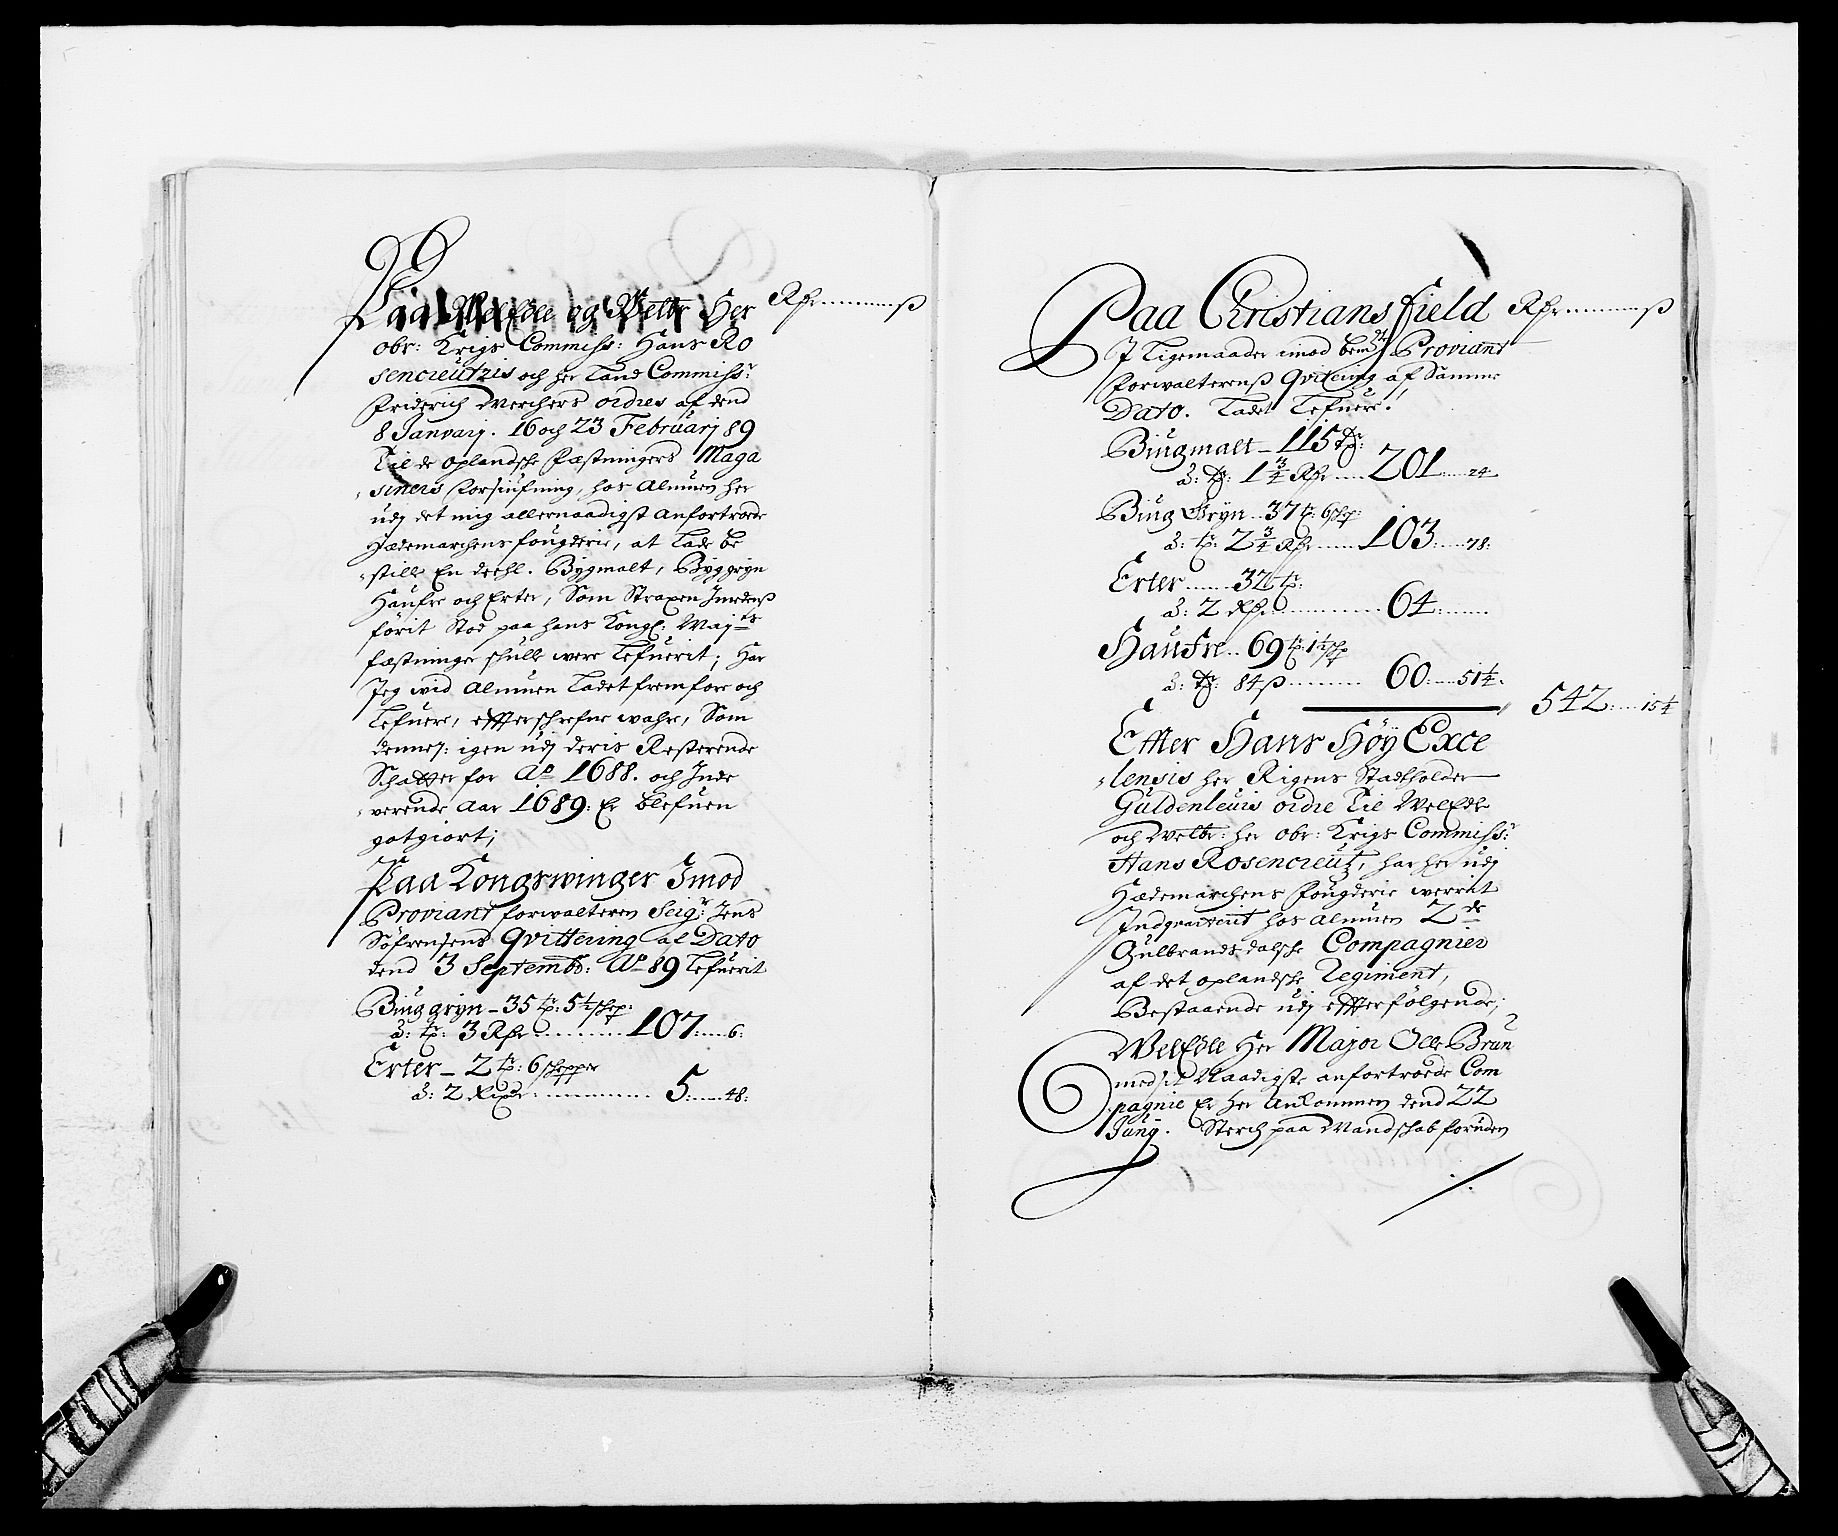 Paa Welædle og Welbr Her Rdr ß
obr: Krigs Commiss: Hans Ro
sencreutzis och her Land Commiss:r
Friderich Werchers ordres af dend
8 Januarj. 16 och 23 Februarj 89
Til de oplandske Fæstningers Maga
siners Forsiufning, hos Almuen her
udj det mig allernaadigst anfortroede
Hædemarchens fougderie, at lade be
stille En deehl. Bygmalt, Byggryn
Haufre och Erter, Som Straxen Imedens
förit Stod paa hans Kongl: May:ts
fæstninger skulle were lefuerit; Har
Jeg wid Almuen ladet fremföre och
lefuere, effterschrefne wahre, Som
dennej: igen udj deris Resterende
Schatter for Ao 1688. och Inde
werende Aar 1689: Er blefuen
gotgiort;
Paa Kongswinger Imod
Proviant forwalteren Seig:r Jens
Söfrensens Qvittering al Dato
dend 3 Septemb: Ao 89 lefuerit
Biuggryn - 35 tr: 5½ skp:
à: tr: 3 Rdr 107 6:
Erter - 2 tr: 6 skepper
à: 2 Rixdr: 5 48:
Paa Christiansfield Rdr ß
J ligemaader imod bem:te Proviant
forwalterenß Qvitering af Samme
Dato. Ladet lefuere!
Biugmalt - 115 tr:
à: tr: 1¾ Rdr 201 24
Biug Gryn 37 tr: 6 skp:
à: tr: 2¾ Rdr 103 78:
Erter 32 tr:
à: 2 Rdr 64
Haufre 69 tr: 1½ skp
à: tr: 84 ß 60 51¼
542 15¼
Effter Hans Höy Exce
lensis her Rigens Stadtholder
Güldenleuis ordre Til Welædle
och Welbr: her obr: Krigs Commiss:r
Hans Rosencreutz, har her udj
Hædemarchens Fougderie werrit
Indqvarterit hos Almuen 2de
Gulbrandsdalske Compagnier
af det oplandske Regiment,
Bestaaende udj effterfölgende;
Welædle Her Major Olle Brun
med sit Naadigste anfortroede Com
pagnie Er her Ankommen dend 22
Junij. Sterch paa Mandskab foruden